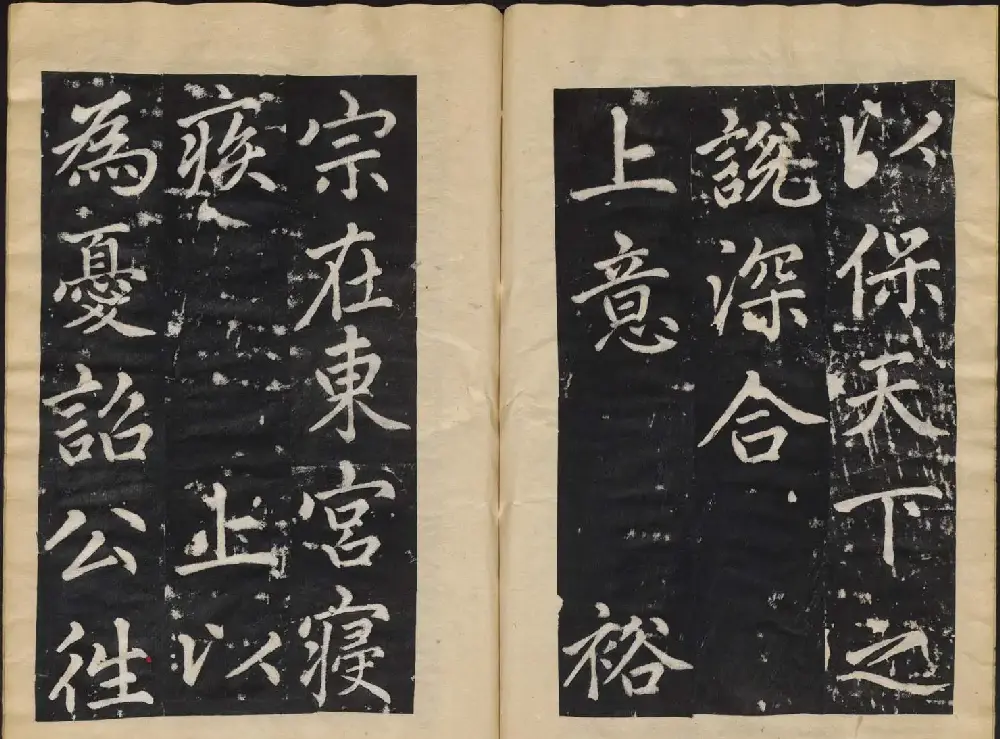 以保天下之
說深合
上意 裕
宗在東宮寢
疾 上以
為憂詔公徃